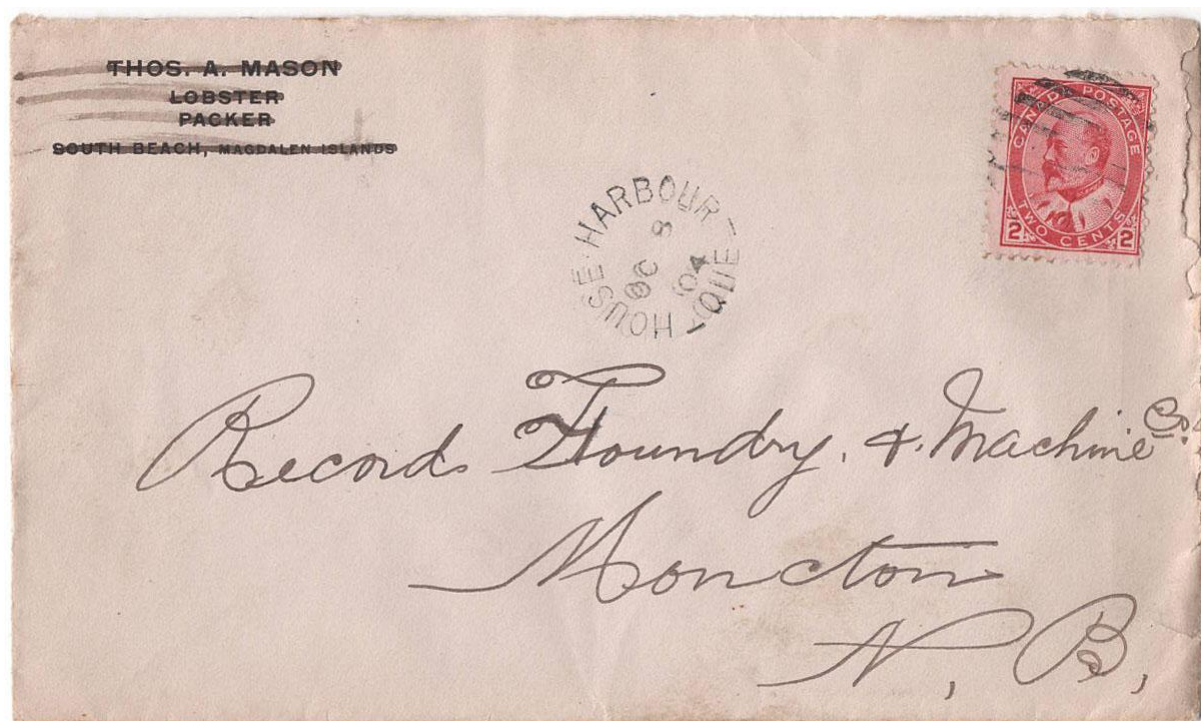 THOS. A. MASON
LOBSTER
PACKER
SOUTH BEACH, MAGDALEN ISLANDS
CANADA POSTAGE
TWO CENTS
2 2
HOUSE · HARBOUR - QUE -
OC 8
04
Record Foundry. & Machine Co.
Moncton
N, B,